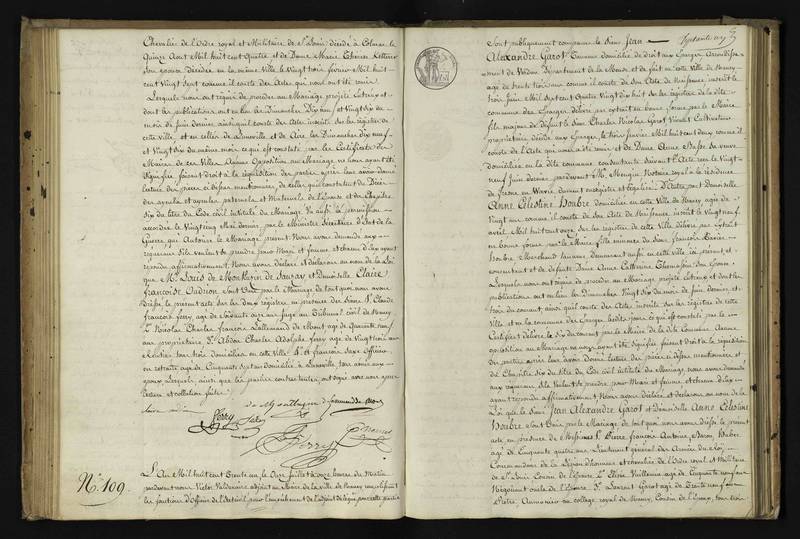 Chevalier de l'Ordre royal et Militaire de St Louis décédé à Colmar le
quinze Aout Mil huit cent quatre, et de Dame Marie Thérèse
son épouse décédée en la même Ville le vingt trois février Mil huit
cent vingt sept comme il conste des Actes qui nous ont été remis.
Lesquels nous ont requis de procéder au Mariage projeté entr'eux et
dont les publications ont eu lieu les Dimanches Dix neuf et vingt six du
mois de juin dernier, ainsi qu'il conste des Actes inscrits sur les registres de
cette ville, et en celles de Lunéville et de les Dimanches dix neuf
et vingt six du même mois ce qui est constaté par les Certificats des
Maires de ces Villes. Aucune Opposition au Mariage ne nous ayant été
signifiée, faisant droit à la réquisition des parties, après leur avoir donné
lecture des pièces ci dessus mentionnées, de celles qui constatent les Décès
des ayeuls et ayeules paternels et Maternels de l'Epouse et du Chapitre
six du titre du Code civil intitulé du Mariage. Vu aussi la permission
accordée le vingt cinq Mai dernier par le Ministre Secrétaire d'Etat de la
Guerre, qui autorise le Mariage présent. Nous avons demandé aux
requérans s'ils veulent se prendre pour Mari et femme et chacun d'eux ayant
répondu affirmativement, Nous avons déclaré et déclarons au nom de la Loi
que Mr Louis de Monthurin de et Demoiselle Claire
françoise Oudrion sont Unis par le Mariage. De tout quoi nous avons
dressé le présent acte sur les deux registres en présence des Sieurs St Claude
françois ferry, agé de soixante onze ans juge au Tribunal civil de Nancy
St Nicolas Charles françois Lallemand de Mont agé de quarante neuf
ans propriétaire St Abdon Charles Adolphe ferry agé de vingt trois ans
Rentier tous trois domiciliés en cette Ville & St françois Saxe Officier
en retraite agé de Cinquante sept ans domicilié à Lunéville, tous amis aux
époux, lesquels ainsi que les parties contractantes, ont signé avec nous après
lecture et collation faites.
ferry
ferry
N.º 109.
L'An Mil huit cent Trente un le Onze juillet à onze heures du matin
pardevant nous Victor Valdenaire adjoint au Maire de la ville de Nancy remplissant
les fonctions d'Officier de l'état civil, pour l'empêchement de l'adjoint délégué pour cette partie
Sont publiquement comparus le Sieur Jean
Alexandre Garot domicilié de droit aux Eparges Arrondisse
ment de Verdun Département de la Meuse et de fait en cette Ville de Nancy
agé de trente trois ans comme il conste de son Acte de Naissance inscrit le
trois juin Mil sept cent quatre vingt dix huit sur les registres de la dite
commune des Eparges délivré par extrait en bonne forme par le Maire
fils majeur de défunt le Sieur Charles Nicolas Garot vivant Cultivateur
propriétaire décédé aux Eparges le trois janvier Mil huit cent douze comme il
conste de l'Acte qui nous a été remis et de Dame Anne Basse sa veuve
domiciliée en la dite commune consentante suivant l'Acte reçu le vingt
neuf juin dernier pardevant Me Mengin Notaire royal à la résidence
de fresne en Woevre dument enregistré et légalisé. D'autre part Demoiselle
Anne Célestine Houbre domiciliée en cette Ville de Nancy agée de
vingt ans comme il conste de son Acte de Naissance inscrit le vingt neuf
avril Mil huit cent onze sur les registres de cette Ville délivré par extrait
en bonne forme par le Maire fille mineure du Sieur françois Xavier
Houbre Marchand demeurant aussi en cette ville ici présent et
consentant et de défunte Dame Anne Catherine son Epouse.
Lesquels nous ont requis de procéder au Mariage projeté entr'eux et dont les
publications ont eu lieu les Dimanches vingt six du mois de juin dernier, et
trois du courant, ainsi qu'il conste des Actes inscrits sur les registres de cette
Ville et en la commune des Eparges les dits jours ce qui est constaté par le
Certificat délivré le dix du courant par le Maire de la dite Commune. Aucune
opposition au Mariage ne nous ayant été signifiée faisant droit à la réquisition
des parties après leur avoir donné lecture des pièces ci dessus mentionnées et
du Chapitre six du titre du Code civil intitulé du Mariage, nous avons demandé
aux requérans s'ils veulent se prendre pour Mari et femme et chacun d'eux
ayant répondu affirmativement, Nous avons déclaré et déclarons au nom de la
Loi que le Sieur Jean Alexandre Garot et Demoiselle Anne Célestine
Houbre sont Unis par le Mariage. De tout quoi nous avons dressé le présent
acte en présence de Messieurs St Pierre françois Antoine Baron Huber
agé de Cinquante quatre ans Lieutenant général des Armées du Roi,
Commandeur de la Légion d'honneur et chevalier de l'Ordre royal et Militaire
de St Louis Cousin de l'Epouse St Vuillaume agé de Cinquante neuf ans
Négociant oncle de l'Epouse St Laurent Garot agé de Trente neuf ans
Prêtre, Aumonier au collège royal de Nancy, Cousin de l'Epoux, tous trois